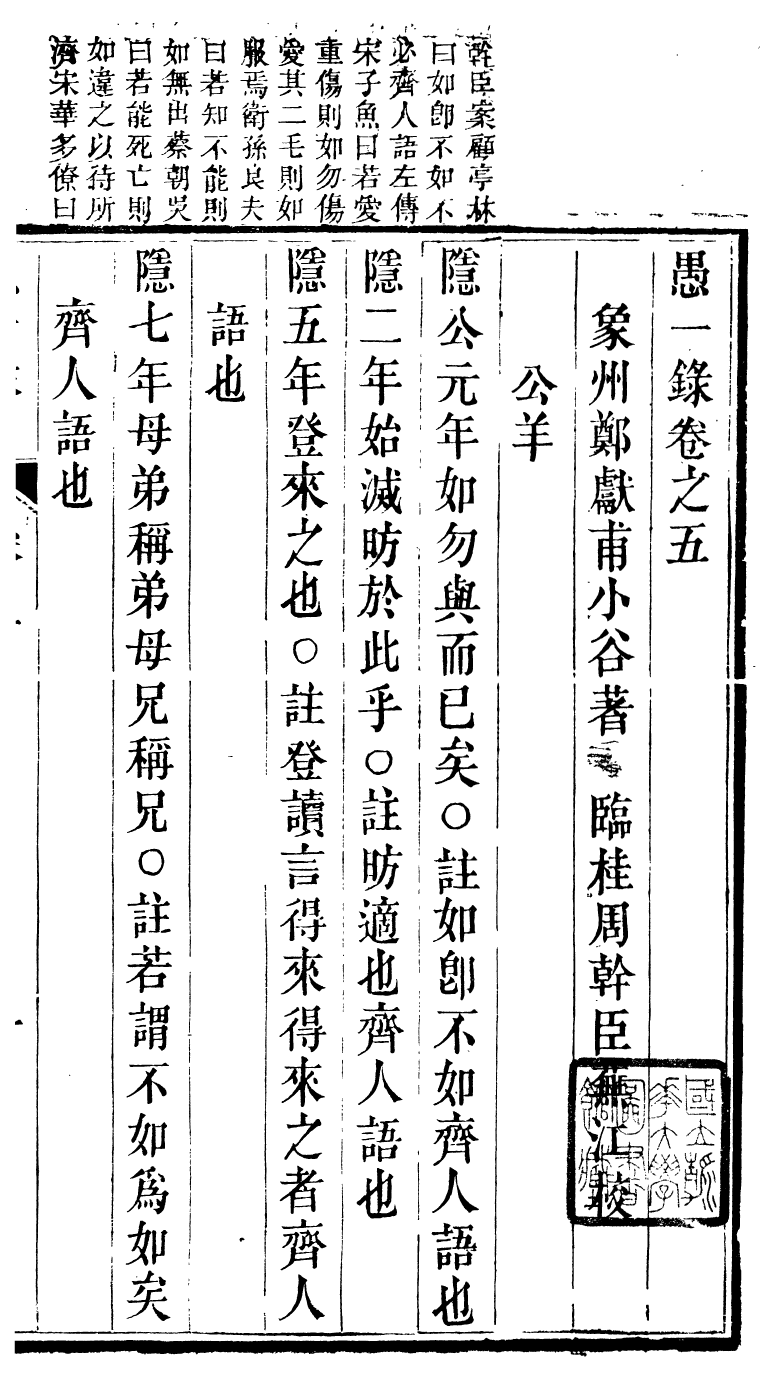 幹臣案顧亭林
曰如卽不如不
必齊人語左傳
宋子魚曰若愛
重傷則如勿傷
愛其二毛則如
服焉衛孫良夫
曰若知不能則
如無出蔡朝吳
曰若能死亡則
如違之以待所
濟宋華多僚曰
愚一錄卷之五
象州鄭獻甫小谷著 臨桂周幹臣無江校
公羊
隱公元年如勿與而已矣○註如卽不如齊人語也
隱二年始滅昉於此乎○註昉適也齊人語也
隱五年登來之也○註登讀言得來得來之者齊人
語也
隱七年母弟稱弟母兄稱兄○註若謂不如爲如矣
齊人語也